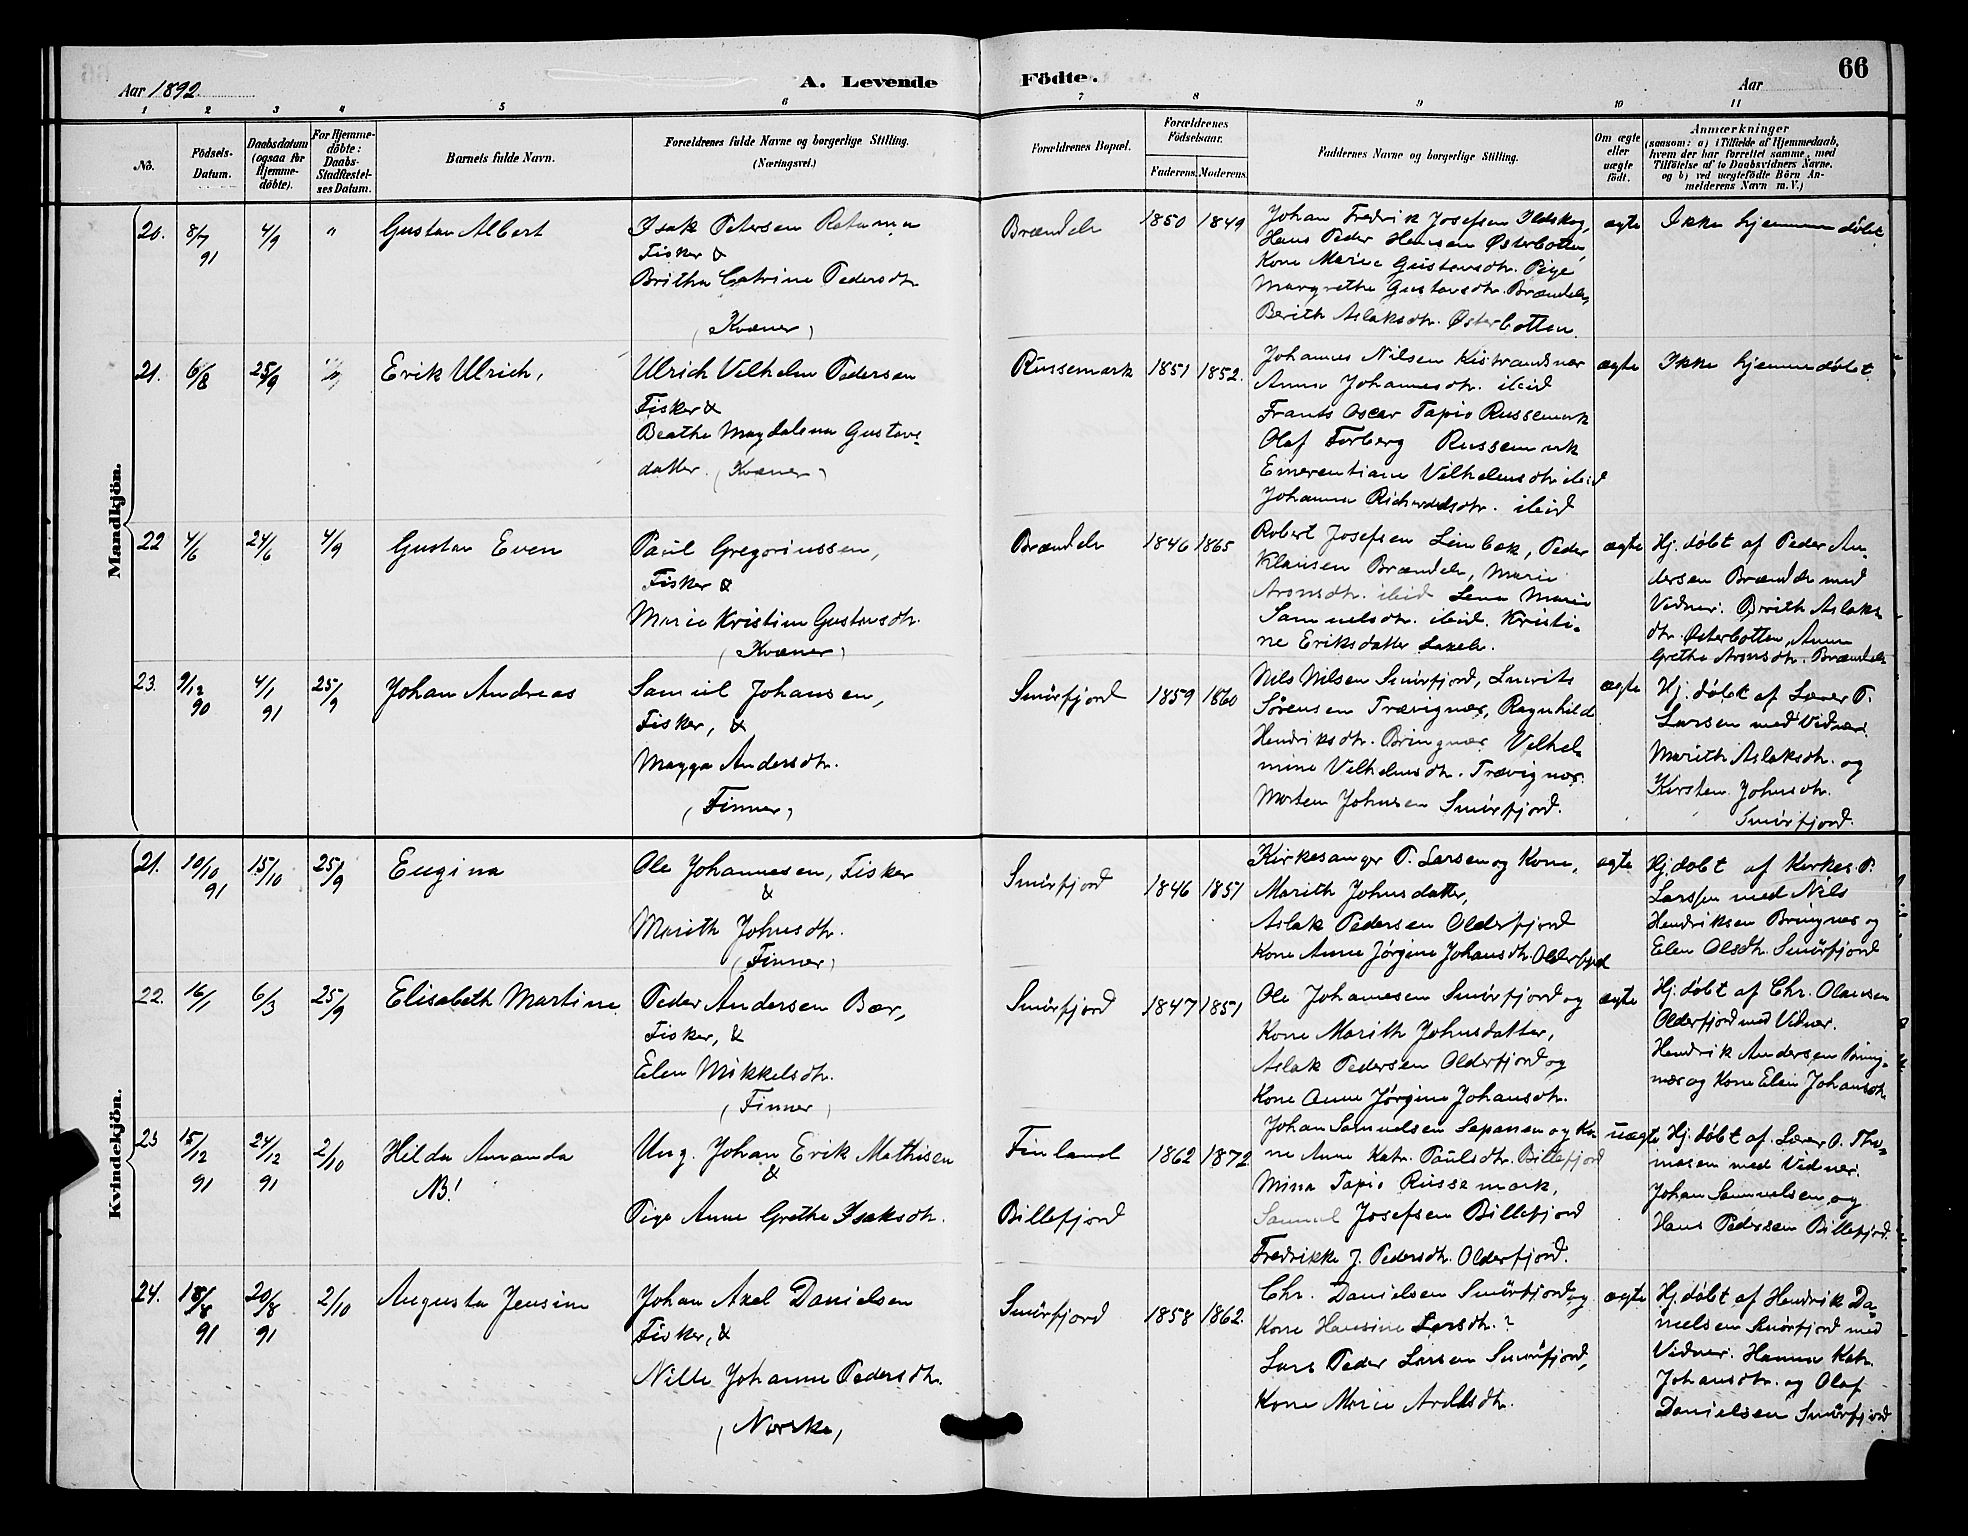 Aar 1892.
A. Levende Födte.
Aar
66
1 2 3 4 5 6 7 8 9 10 11
No.
Födsels-Datum.
Daabsdatum (ogsaa for Hjemme-döbte).
For Hjemme-döbte: Daabs-Stadfæstel-ses Datum.
Barnets fulde Navn.
Forældrenes fulde Navne og borgerlige Stilling. (Næringsvei.)
Forældrenes Bopæl.
Forældrenes Födselsaar.
Faderens. Moderens.
Faddernes Navne og borgerlige Stilling.
Om ægte eller uægte födt.
Anmærkninger
(saasom: a) i Tilfælde af Hjemmedaab, hvem der har forrettet samme, med Tilföielse af to Daabsvidners Navne. og b) ved uægtefödte Börn An-melderens Navn m. V.)
Mandkjön.
20. 8/7 91 4/9 " Gustav Albert
Isak Petersen
Fisker &
Britha Catrine Pedersdtr.
(Kvæner)
Brændelv 1850 1849
Johan Fredrik Josefsen Ildskog,
Hans Peder Hansen Østerbotten,
Kone Marie Gustavsdtr. Pige
Margrethe Gustavsdtr. Brændelv,
Berith Aslaksdtr. Østerbotten
ægte
Ikke hjemmedöbt
21. 6/8 25/9 Erik Ulrich,
Ulrich Vilhelm Pedersen
Fisker &
Beathe Magdalena Gustavs-
datter. (Kvæner)
Russemark 1851 1852.
Johannes Nilsen Kistrandnæs
Anna Johannesdtr. ibid
Frants Oscar Tapio Russemark
Olaf Forberg Russemark
Emerentiane Vilhelmsdtr. ibid
Johanna Richardsdtr. ibid
ægte
Ikke hjemmedöbt
22 4/6 24/6 4/9 Gustav Even
Paul Gregoriussen,
Fisker &
Marie Kristine Gustavsdtr.
(Kvæner)
Brændelv 1846 1865
Robert Josefsen Limbæk, Peder
Klausen Brændelv, Marie
Aronsdtr. ibid Lena Marie
Samuelsdtr. ibid. Kristi-
ne Eriksdatter Laxelv.
ægte
Hj. döbt af Peder An-
dersen Brændelv med
Vidner: Brith Aslaks-
dtr. Østerbotten, Anne
Grethe Aronsdtr. Brændelv
23. 9/12 90 4/1 91 25/9 Johan Andreas
Samuel Johansen,
Fisker, &
Magga Andersdtr.
(Finner)
Smörfjord 1859 1860
Nils Nilsen Smörfjord, Lavrits
Sörensen Trævignæs, Ragnhild
Hendriksdtr. Bringnæs Vilhel-
mine Vilhelmsdtr. Trævignæs.
Morten Johnsen Smörfjord.
ægte
Hj. döbt af Lærer P.
Larsen med Vidner:
Marith Aslaksdtr. og
Kirsten Johnsdtr.
Smörfjord.
Kvindekjön.
21. 10/10 91 15/10 25/9 Eugina
Ole Johannesen, Fisker
&
Marith Johnsdtr.
(Finner)
Smörfjord 1846 1851
Kirkesanger P. Larsen og Kone,
Marith Johnsdatter,
Aslak Pedersen Olderfjord
Kone Anne Jørgine Johansdtr. Olderfjord
ægte
Hj. döbt af Kirkes. P.
Larssen med Nils
Hendriksen Bringnæs og
Elen Olsdtr. Smörfjord
22. 16/1 6/3 25/9 Elisabeth Martine
Peder Andersen Bær,
Fisker, &
Elen Mikkelsdtr.
(Finner)
Smörfjord 1847 1851
Ole Johannesen Smörfjord og
Kone Marith Johnsdatter,
Aslak Pedersen Olderfjord og
Kone Anne Jørgine Johansdtr.
ægte
Hj. döbt af Chr. Olausen
Olderfjord med Vidner:
Hendrik Andersen Bring-
næs og Kone Elen Johansdtr.
23 15/12 91 24/12 91 2/10 Hilda Amanda
NB!
Ung. Johan Erik Mathisen
&
Pige Anne Grethe Isaksdtr.
Finland
Billefjord
1862 1872
Johan Samuelsen Sapanen og Ko-
ne Anne Katr. Paulsdtr. Billefjord
Mina Tapio Russemark,
Samuel Josefsen Billefjord
Fredrikke J. Pedersdtr. Olderfjord.
uægte
Hj. döbt af Lærer O. Tho-
masen med Vidner:
Johan Samuelsen og
Hans Pedersen Billefjord.
24. 18/8 91 20/8 91 2/10 Augusta Jensine
Johan Axel Danielsen
Fisker, &
Nille Johanne Pedersdtr.
(Norske)
Smörfjord 1858 1862.
Chr. Danielsen Smörfjord og
Kone Hansine Larsdtr.?
Lars Peder Larsen Smörfjord,
Kone Marie
ægte
Hj. döbt af Hendrik Da-
nielsen Smörfjord med
Vidner: Hanna Katr.
Johansdtr. og Olaf
Danielsen Smörfjord